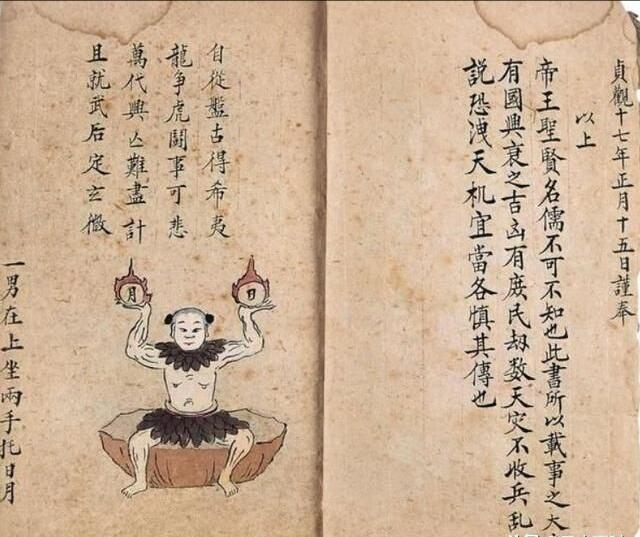 貞觀十七年正月十五日謹奉
以上
帝王聖賢名儒不可不知也此書所以載事之大
有國興衰之吉凶有庶民刼数天灾不收兵乱
説恐洩天机宜當各慎其傳也
自從盤古得希夷
龍争虎鬪事可悲
萬代興亾難盡計
且就武后定玄微
日
月
一男在上坐兩手托日月